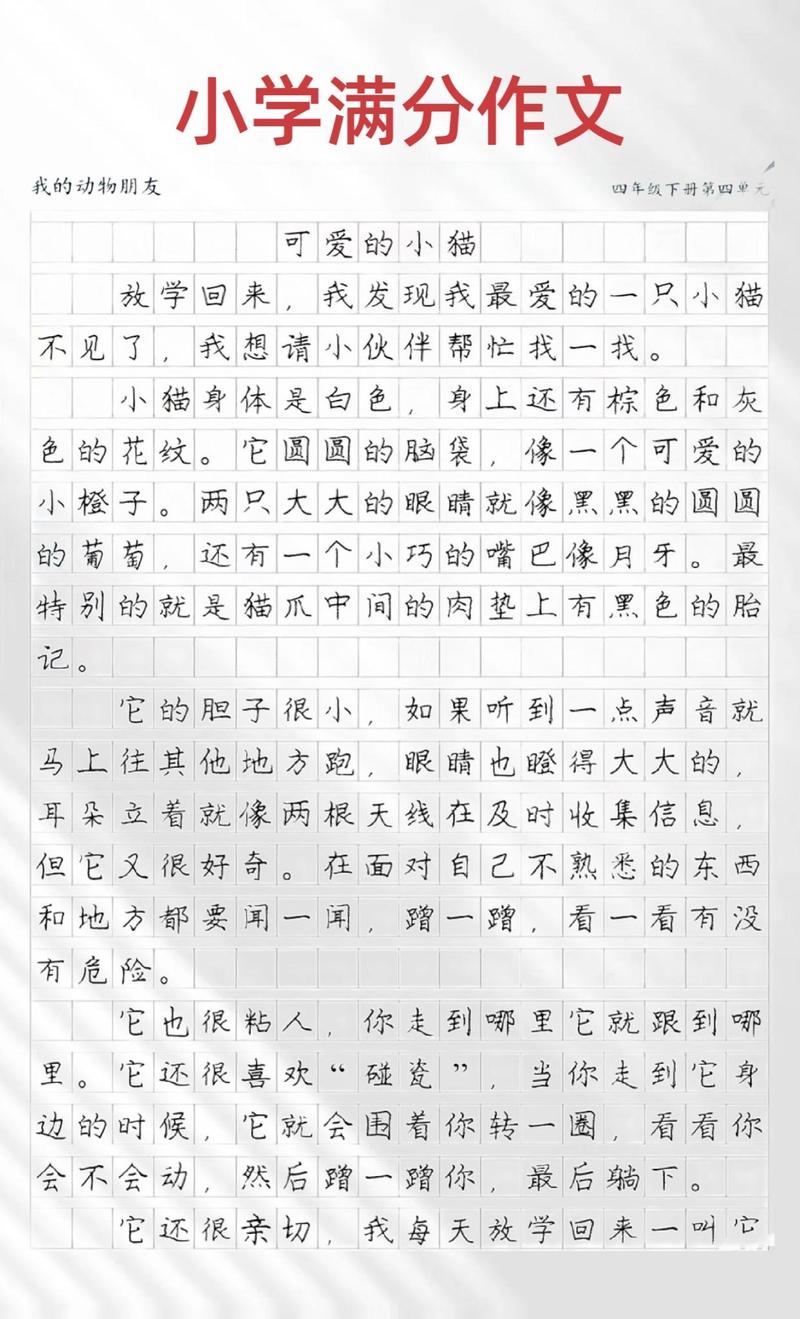 小学满分作文
我的动物朋友
四年级下册第四单元
可爱的小猫
放学回来，我发现我最爱的一只小猫
不见了，我想请小伙伴帮忙找一找。
小猫身体是白色，身上还有棕色和灰
色的花纹。它圆圆的脑袋，像一个可爱的
小橙子。两只大大的眼睛就像黑黑的圆圆
的葡萄，还有一个小巧的嘴巴像月牙。最
特别的就是猫爪中间的肉垫上有黑色的胎
记。
它的胆子很小，如果听到一点声音就
马上往其他地方跑，眼睛也瞪得大大的，
耳朵立着就像两根天线在及时收集信息，
但它又很好奇。在面对自己不熟悉的东西
和地方都要闻一闻，蹭一蹭，看一看有没
有危险。
它也很粘人，你走到哪里它就跟到哪
里。它还很喜欢“碰瓷”，当你走到它身
边的时候，它就会围着你转一圈，看看你
会不会动，然后蹭一蹭你，最后躺下。
它还很亲切，我每天放学回来一叫它